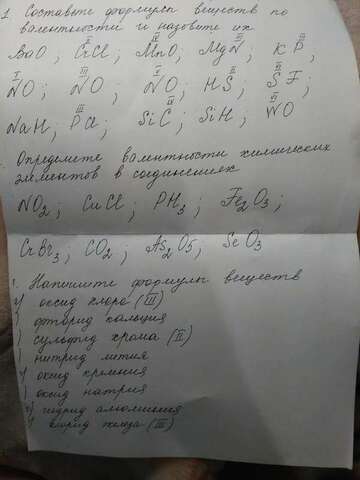 1. Составьте формулы веществ по
валентности и назовите их
BaO ; CrCl (II) ; MnO (IV) ; MgN (III) ; KP (III) ;
NO (I) ; NO (III) ; NO (V) ; HS (II) ; SF (II) ;
NaH ; PCl (III) ; SiC (IV) ; SiH ; NO (II)
Определите валентности химических
элементов в соединениях
NO₂ ; CuCl ; PH₃ ; Fe₂O₃ ;
CrBr₃ ; CO₂ ; As₂O₅ ; SeO₃
Напишите формулы веществ
) оксид хлора (III)
) фторид кальция
) сульфид хрома (II)
) нитрид лития
) оксид кремния
) оксид натрия
) гидрид алюминия
) хлорид железа (III)